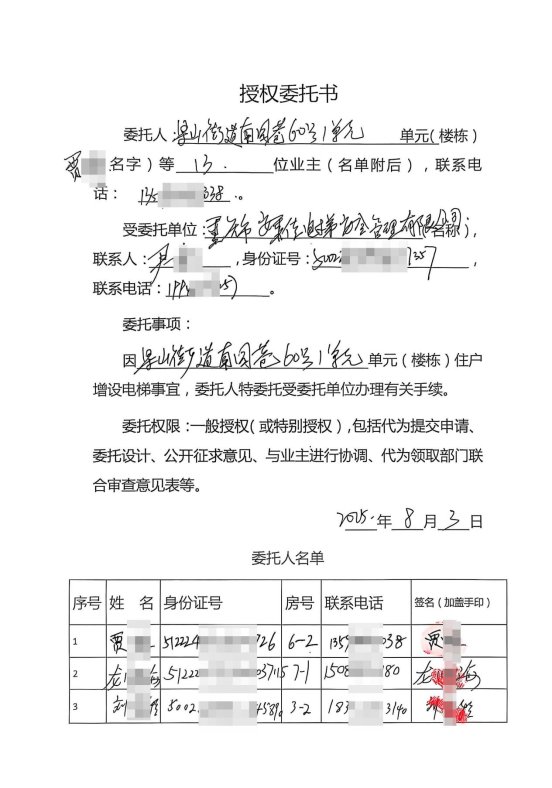 授权委托书
委托人:梁山街道南园巷60号1单元 单元(楼栋)
贾 名字)等 13. 位业主(名单附后),联系电
话: 135 338 。
受委托单位: 安 佳电梯安全管理有限公司 名称),
联系人: ,身份证号:500 357 ,
联系电话:199 57 。
委托事项:
因梁山街道南园巷60号1单元 单元(楼栋)住户
增设电梯事宜,委托人特委托受委托单位办理有关手续。
委托权限:一般授权(或特别授权),包括代为提交申请、
委托设计、公开征求意见、与业主进行协调、代为领取部门联
合审查意见表等。
2025.年 8 月 3 日
委托人名单
序号 姓 名 身份证号 房号 联系电话 签名(加盖手印)
1 贾 51224 326 6-2 135 038 贾
2 龙 海 51222 03715 7-1 1508 180 龙 海
3 刘 5002 4589 3-2 183 3140